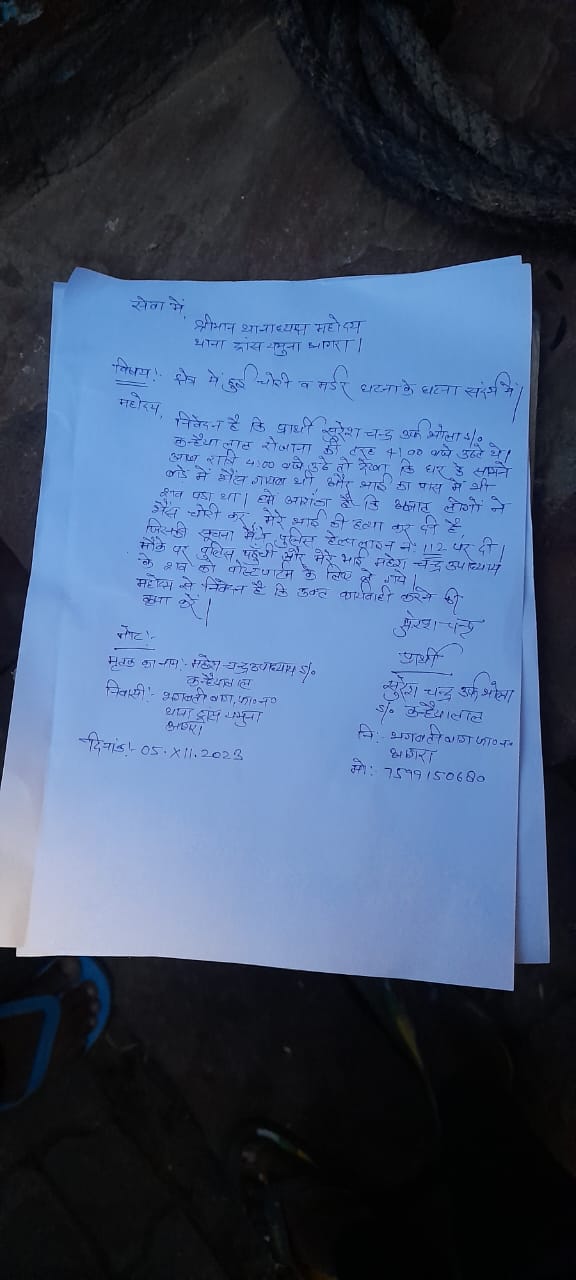 सेवा में,
श्रीमान थानाध्यक्ष महोदय
थाना ट्रांस यमुना आगरा।
विषय:- क्षेत्र में हुई चोरी व मर्डर घटना के घटना संदर्भ में।
महोदय,
निवेदन है कि प्रार्थी सुरेश चन्द्र उर्फ भोला s/o
कन्हैया लाल रोजाना की तरह 4:00 बजे उठते थे।
आज रात्रि 4:00 बजे उठे तो देखा कि घर के सामने
बाडे में भैंस गायब थी और भाई का पास में भी
शव पडा था। हमें आशंका है कि अज्ञात लोगों ने
भैंस चोरी कर मेरे भाई की हत्या कर दी है,
जिसकी सूचना मैंने पुलिस हेल्पलाइन नं: 112 पर दी।
मौके पर पुलिस पहुंची और मेरे भाई महेश चन्द्र उपाध्याय
के शव को पोस्टमार्टम के लिए ले गये।
महोदय से निवेदन है कि उक्त कार्यवाही करने की
कृपा करें।
सुरेश चन्द्र
नोट:-
मृतक का नाम:- महेश चन्द्र उपाध्याय s/o
कन्हैयालाल
निवासी:- भगवती बाग, फा०न०
थाना ट्रांस यमुना
आगरा
दिनांक:- 05.XII.2023
प्रार्थी
सुरेश चन्द्र उर्फ भोला
s/o कन्हैयालाल
नि:- भगवती बाग फा०न०
आगरा
मो:- 7599150680